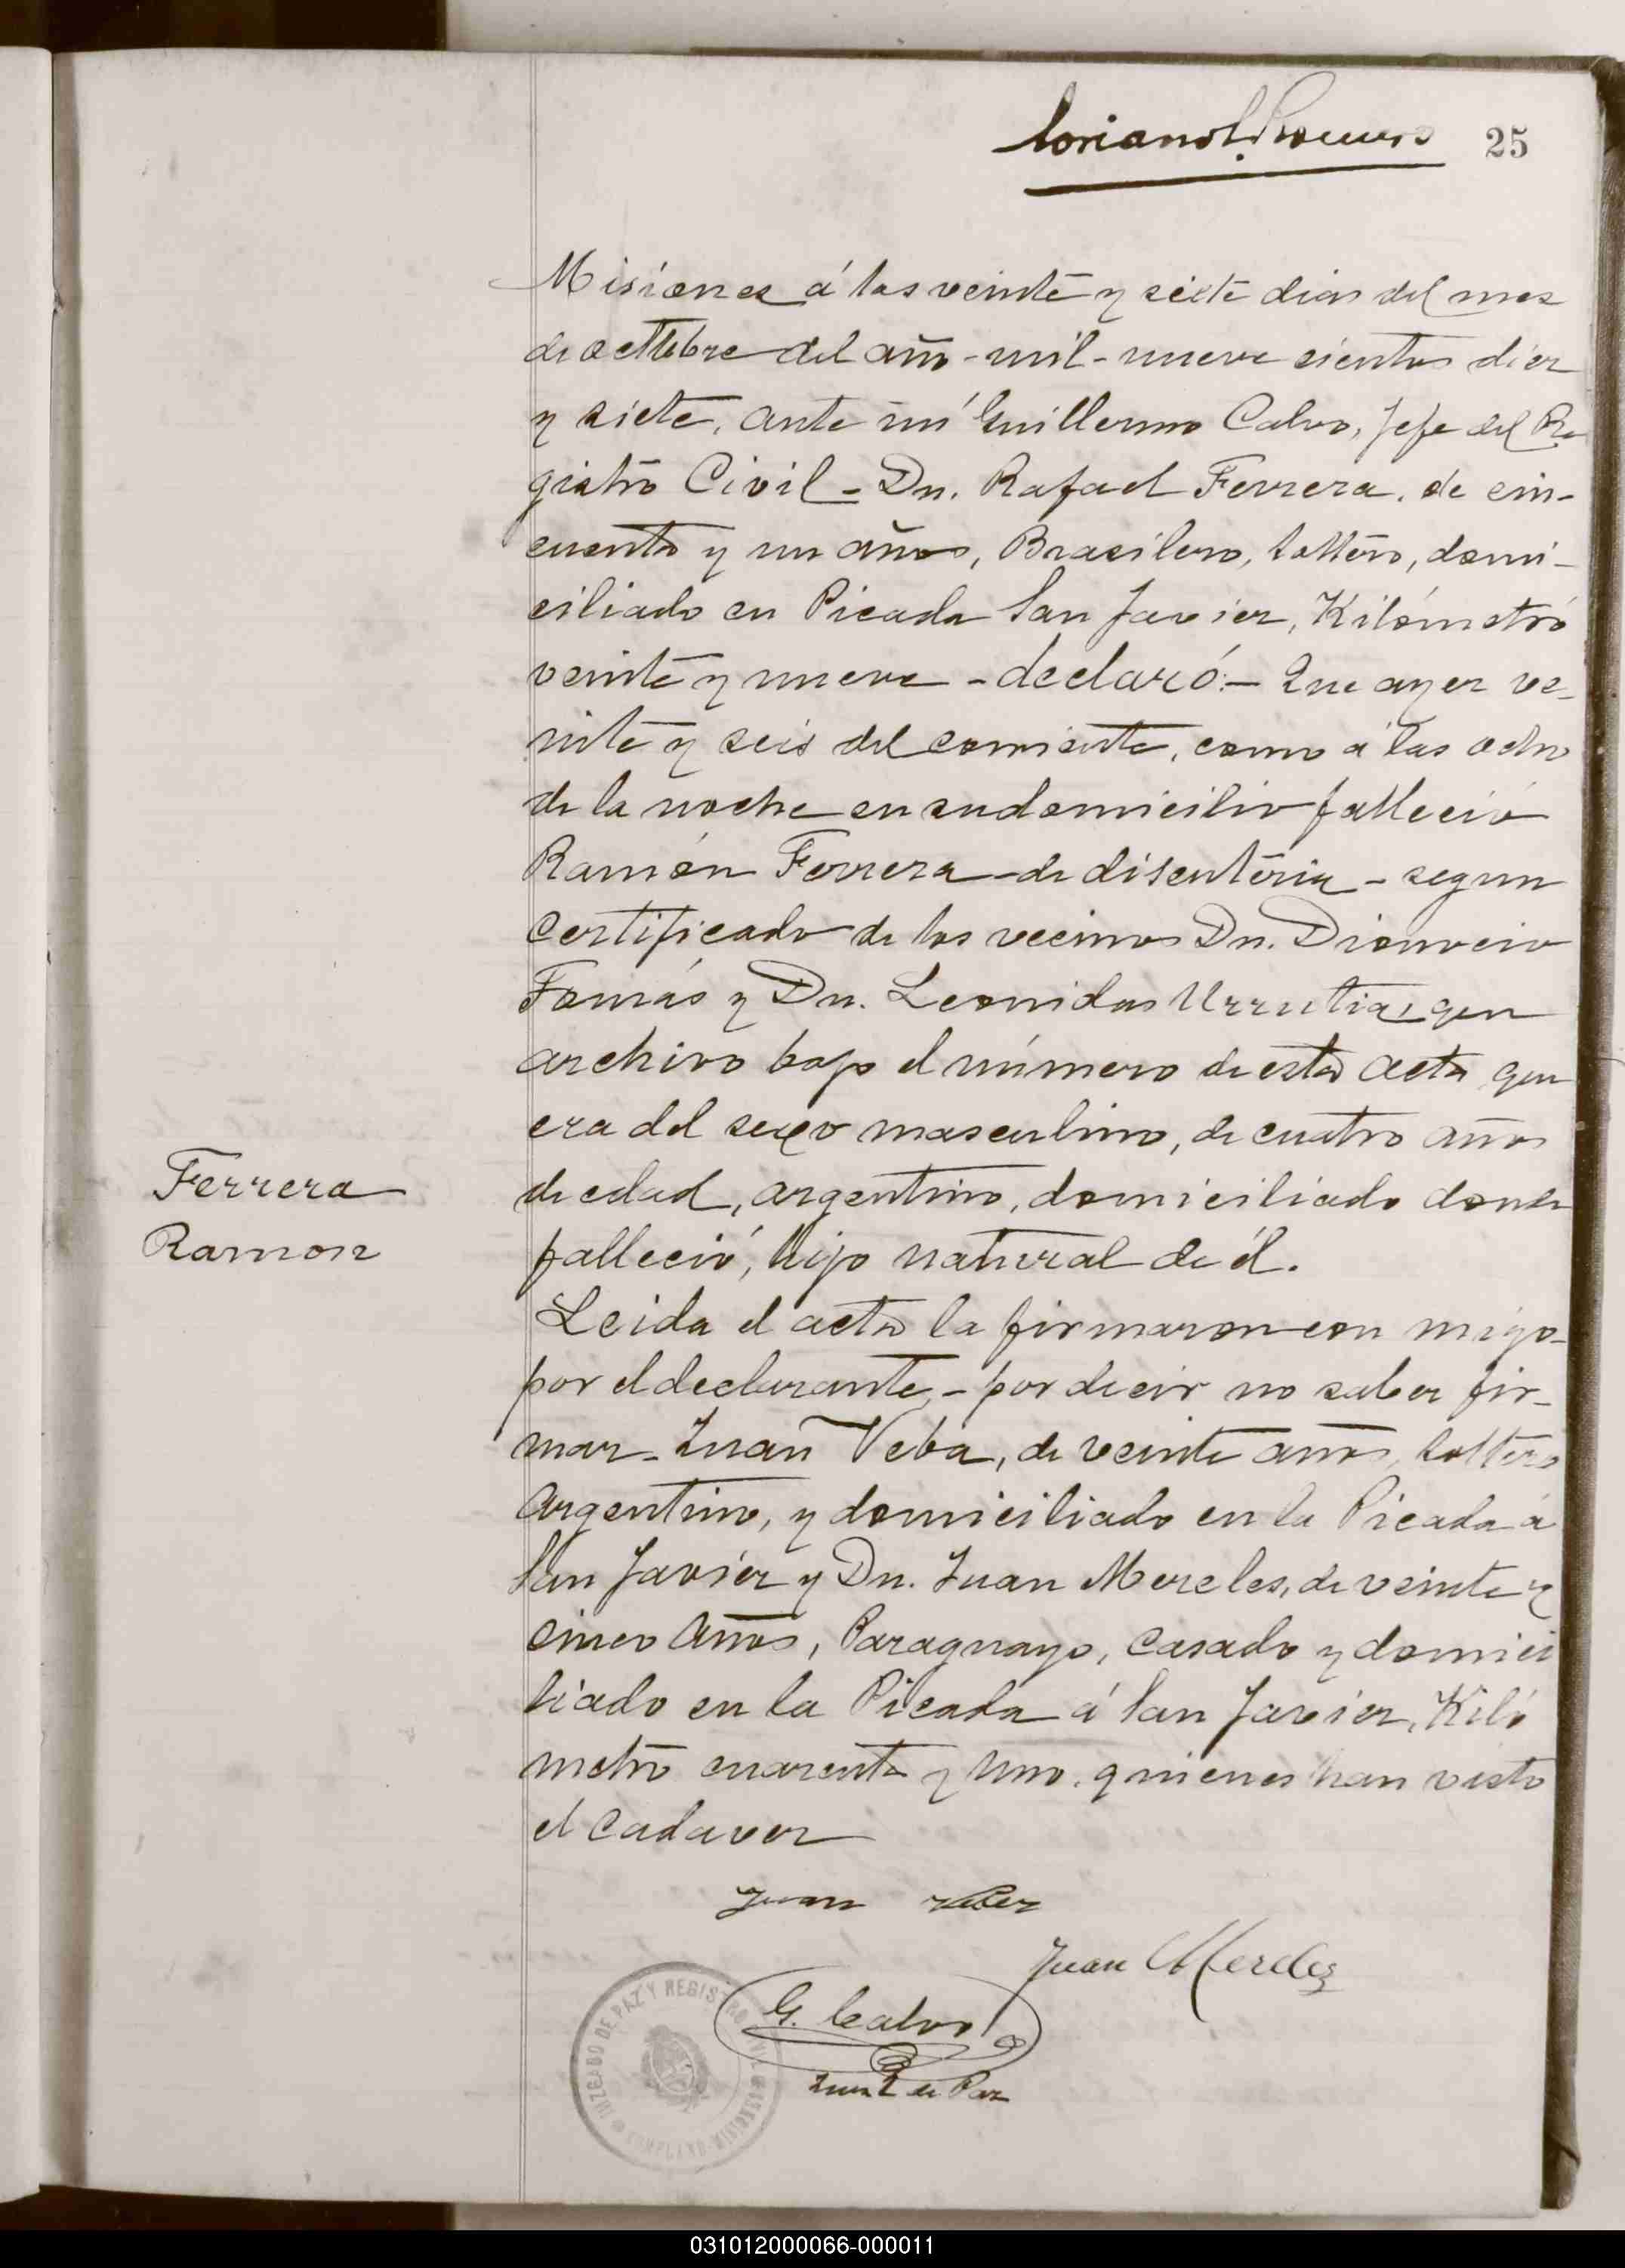 25
Misiones á los veinte y siete dias del mes
de octubre del año - mil - nueve cientos diez
y siete, ante mí Guillermo Calvo, Jefe del Re
gistro Civil - Dn. Rafael Ferrera, de cin-
cuenta y un años, Brasilero, soltero, domi-
ciliado en Picada San Javier, Kilómetro
veinte y nueve - declaró:- Que ayer ve-
inte y seis del corriente, como á las ocho
de la noche en su domicilio falleció
Ramón Ferrera - de disenteria - segun
certificado de los vecinos Dn. Dionicio
Tomás y Dn. Leonidas Urrutia, que
archivo bajo el número de esta acta que
era del sexo masculino, de cuatro años
de edad, argentino, domiciliado donde
falleció, hijo natural de él.
Ferrera
Ramon
Leida el acta la firmaron con migo-
por el declarante - por decir no saber fir-
mar - Juan Veba, de veinte años, soltero
argentino, y domiciliado en la Picada á
San Javier y Dn. Juan Mereles, de veinte y
cinco años, Paraguayo, casado y domici
liado en la Picada á San Javier, Kiló
metro cuarenta y uno, quienes han visto
el cadaver
Juan
Juan Mereles
G. Calvo
Juez de Paz
JUZGADO DE PAZ Y REGISTRO CIVIL
MISIONES
031012000066-000011